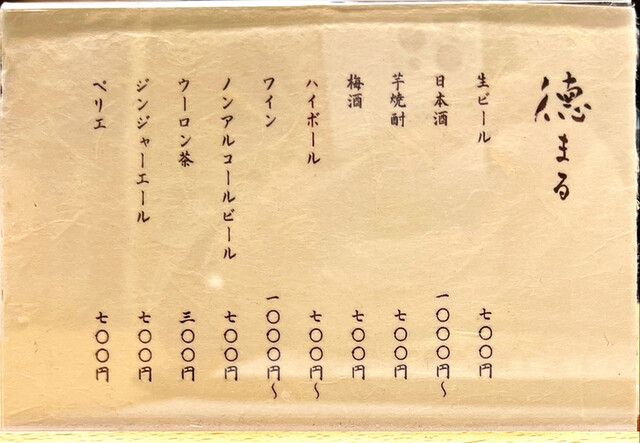 徳まる
生ビール 七〇〇円
日本酒 一〇〇〇円～
芋焼酎 七〇〇円
梅酒 七〇〇円
ハイボール 七〇〇円～
ワイン 一〇〇〇円～
ノンアルコールビール 七〇〇円
ウーロン茶 三〇〇円
ジンジャーエール 七〇〇円
ペリエ 七〇〇円